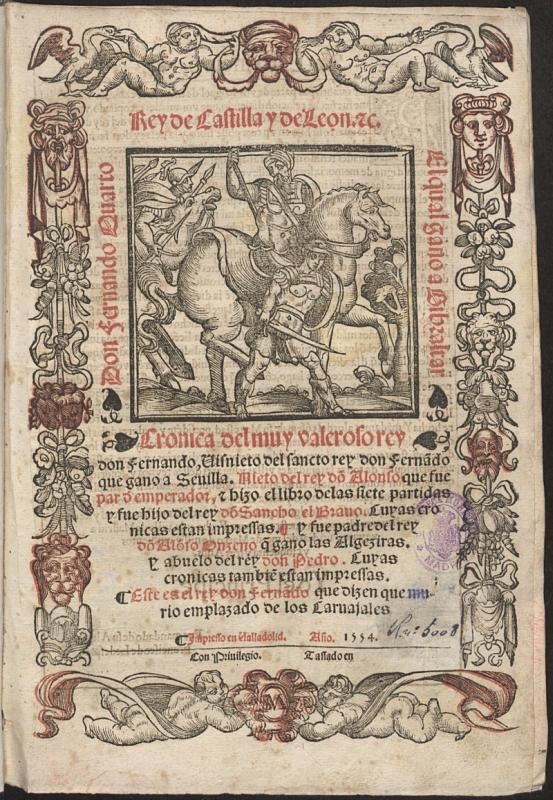 Rey de Castilla y de Leon. ⁊c.
Don Fernando Quarto
El qual gaño a Gibraltar
Cronica del muy valeroso rey
don Fernando, Visnieto del sancto rey don Fernãdo
que gano a Sevilla. Nieto del rey dõ Alonso que fue
par d̃ emperador, ⁊ hizo el libro delas siete partidas
y fue hijo del rey dõ Sancho el Brauo. Cuyas cro
nicas estan impressas. ¶ y fue padre del rey
dõ Alõso Onzeno q̃ gano las Algeziras,
y abuelo del rey don Pedro. Cuyas
cronicas tambiẽ estan impressas.
¶ Este es el rey don Fernãdo que dizen que mu-
rio emplazado de los Caruajales
¶ Impresso en Valladolid. Año. 1554.
Con Priuilegio. Tassado en